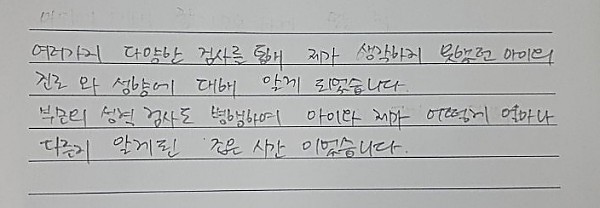 여러가지 다양한 검사를 통해 제가 생각하지 못했던 아이의
진로 와 성향에 대해 알게 되었습니다.
부모의 성격 검사도 병행하여 아이와 제가 어떻게 얼마나
다른지 알게된 깊은 시간 이었습니다.